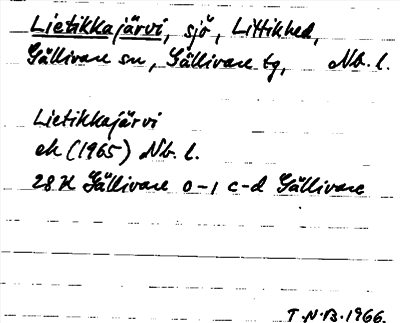 Lietikkajärvi, sjö, Littikhed,
Gällivare sn, Gällivare tg, Nb. l.
Lietikkajärvi
ek (1965) Nb. l.
28 K Gällivare 0-1 c-d Gällivare
T.N.B. 1966.